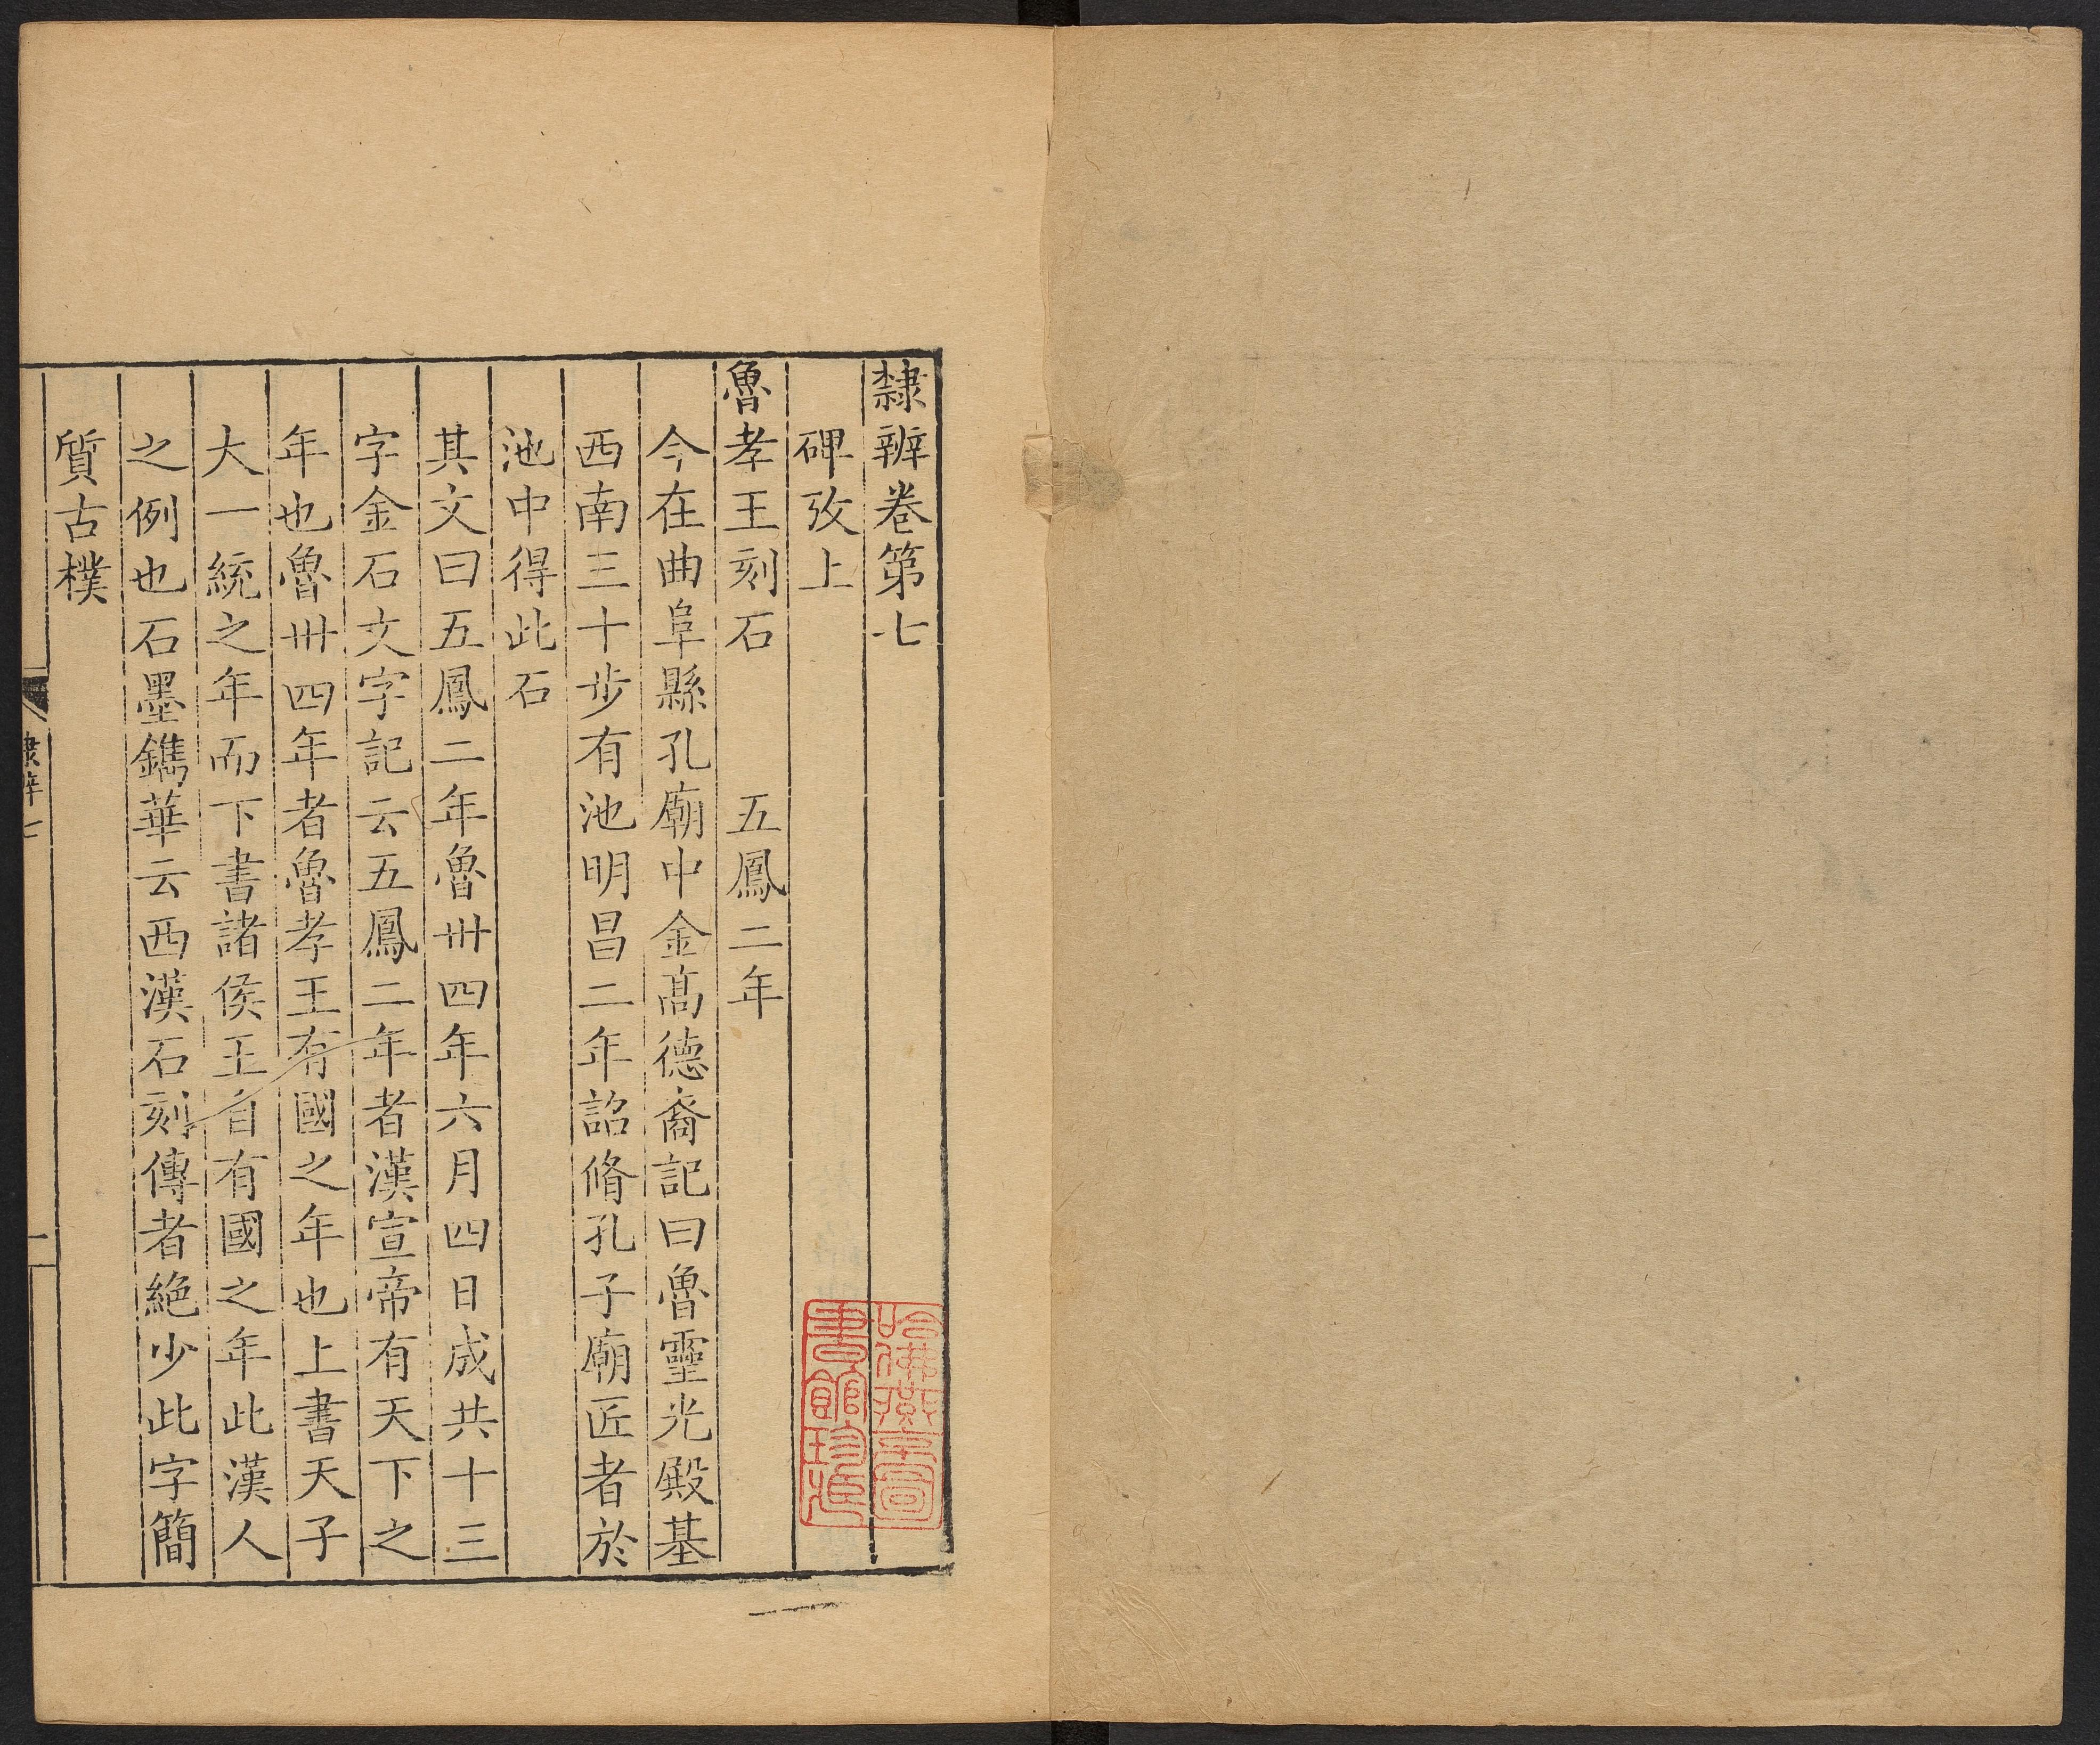 隸辨卷第七
碑攷上
魯孝王刻石 五鳳二年
今在曲阜縣孔廟中金髙德裔記曰魯靈光殿基
西南三十步有池明昌二年詔脩孔子廟匠者於
池中得此石
其文曰五鳳二年魯卅四年六月四日成共十三
字金石文字記云五鳳二年者漢宣帝有天下之
年也魯卅四年者魯孝王有國之年也上書天子
大一統之年而下書諸侯王自有國之年此漢人
之例也石墨鐫華云西漢石刻傳者絶少此字簡
質古樸
隸辨七
一
哈佛燕京圖
書館珍藏